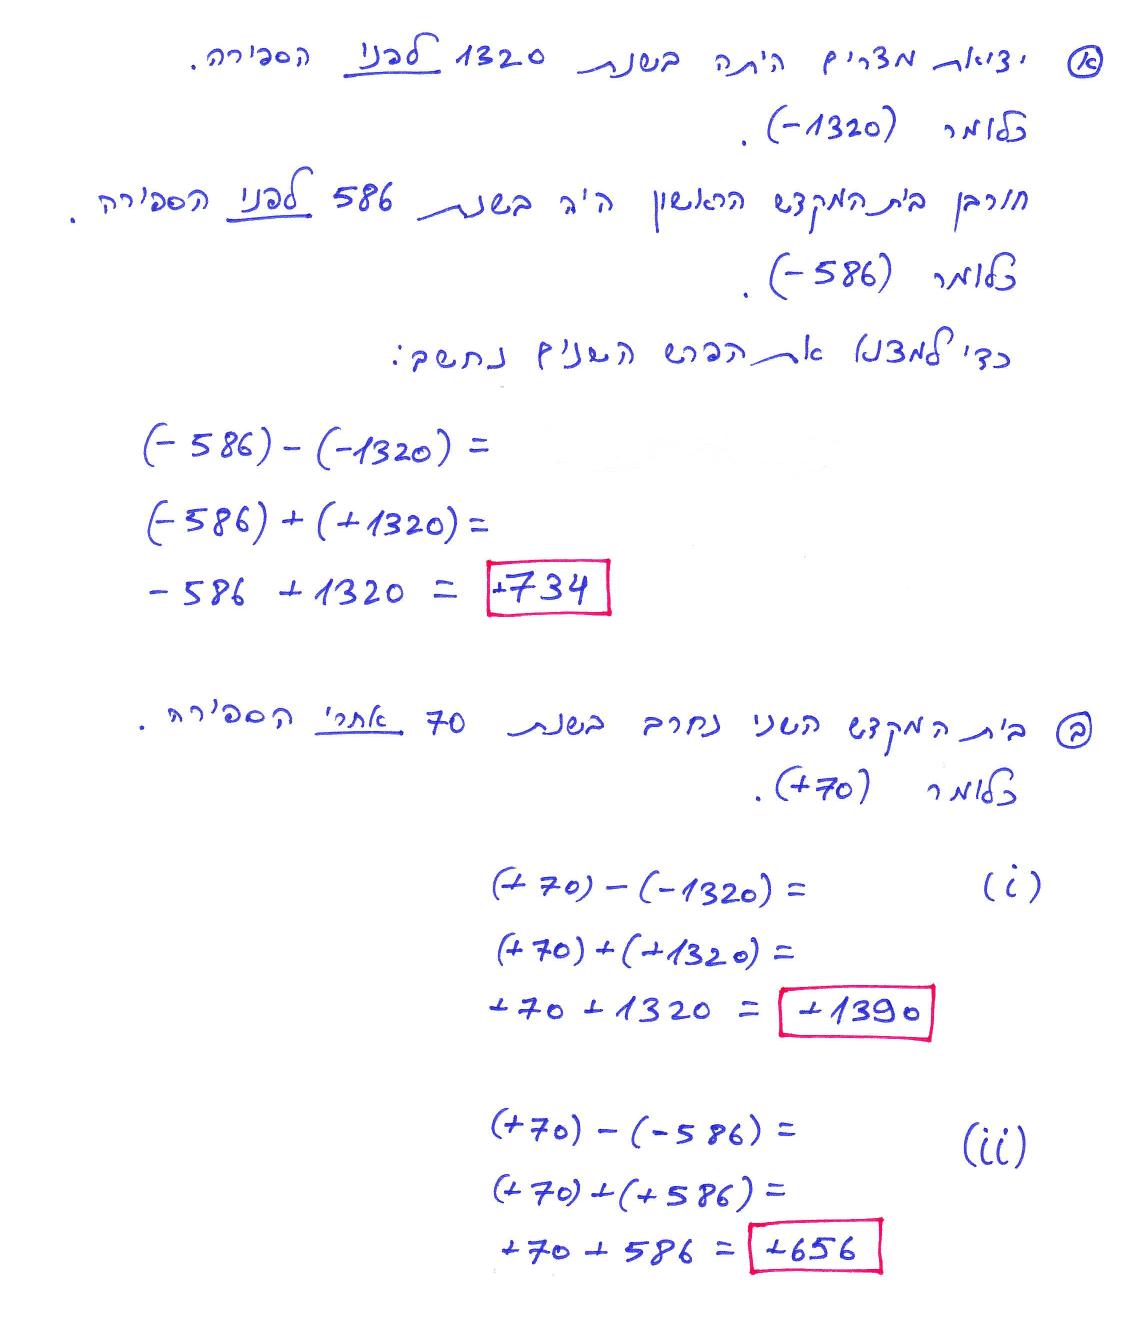 א יציאת מצרים היתה בשנת 1320 לפני הספירה.
כלומר (-1320).
חורבן בית המקדש הראשון היה בשנת 586 לפני הספירה.
כלומר (-586).
כדי למצוא את הפרש השנים נחשב:
(-586)-(-1320)=
(-586)+(+1320)=
-586 +1320 = +734
ב בית המקדש השני נחרב בשנת 70 אחרי הספירה.
כלומר (+70).
(i) (+70)-(-1320)=
(+70)+(+1320)=
+70 +1320 = +1390
(ii) (+70)-(-586)=
(+70)+(+586)=
+70 + 586 = +656